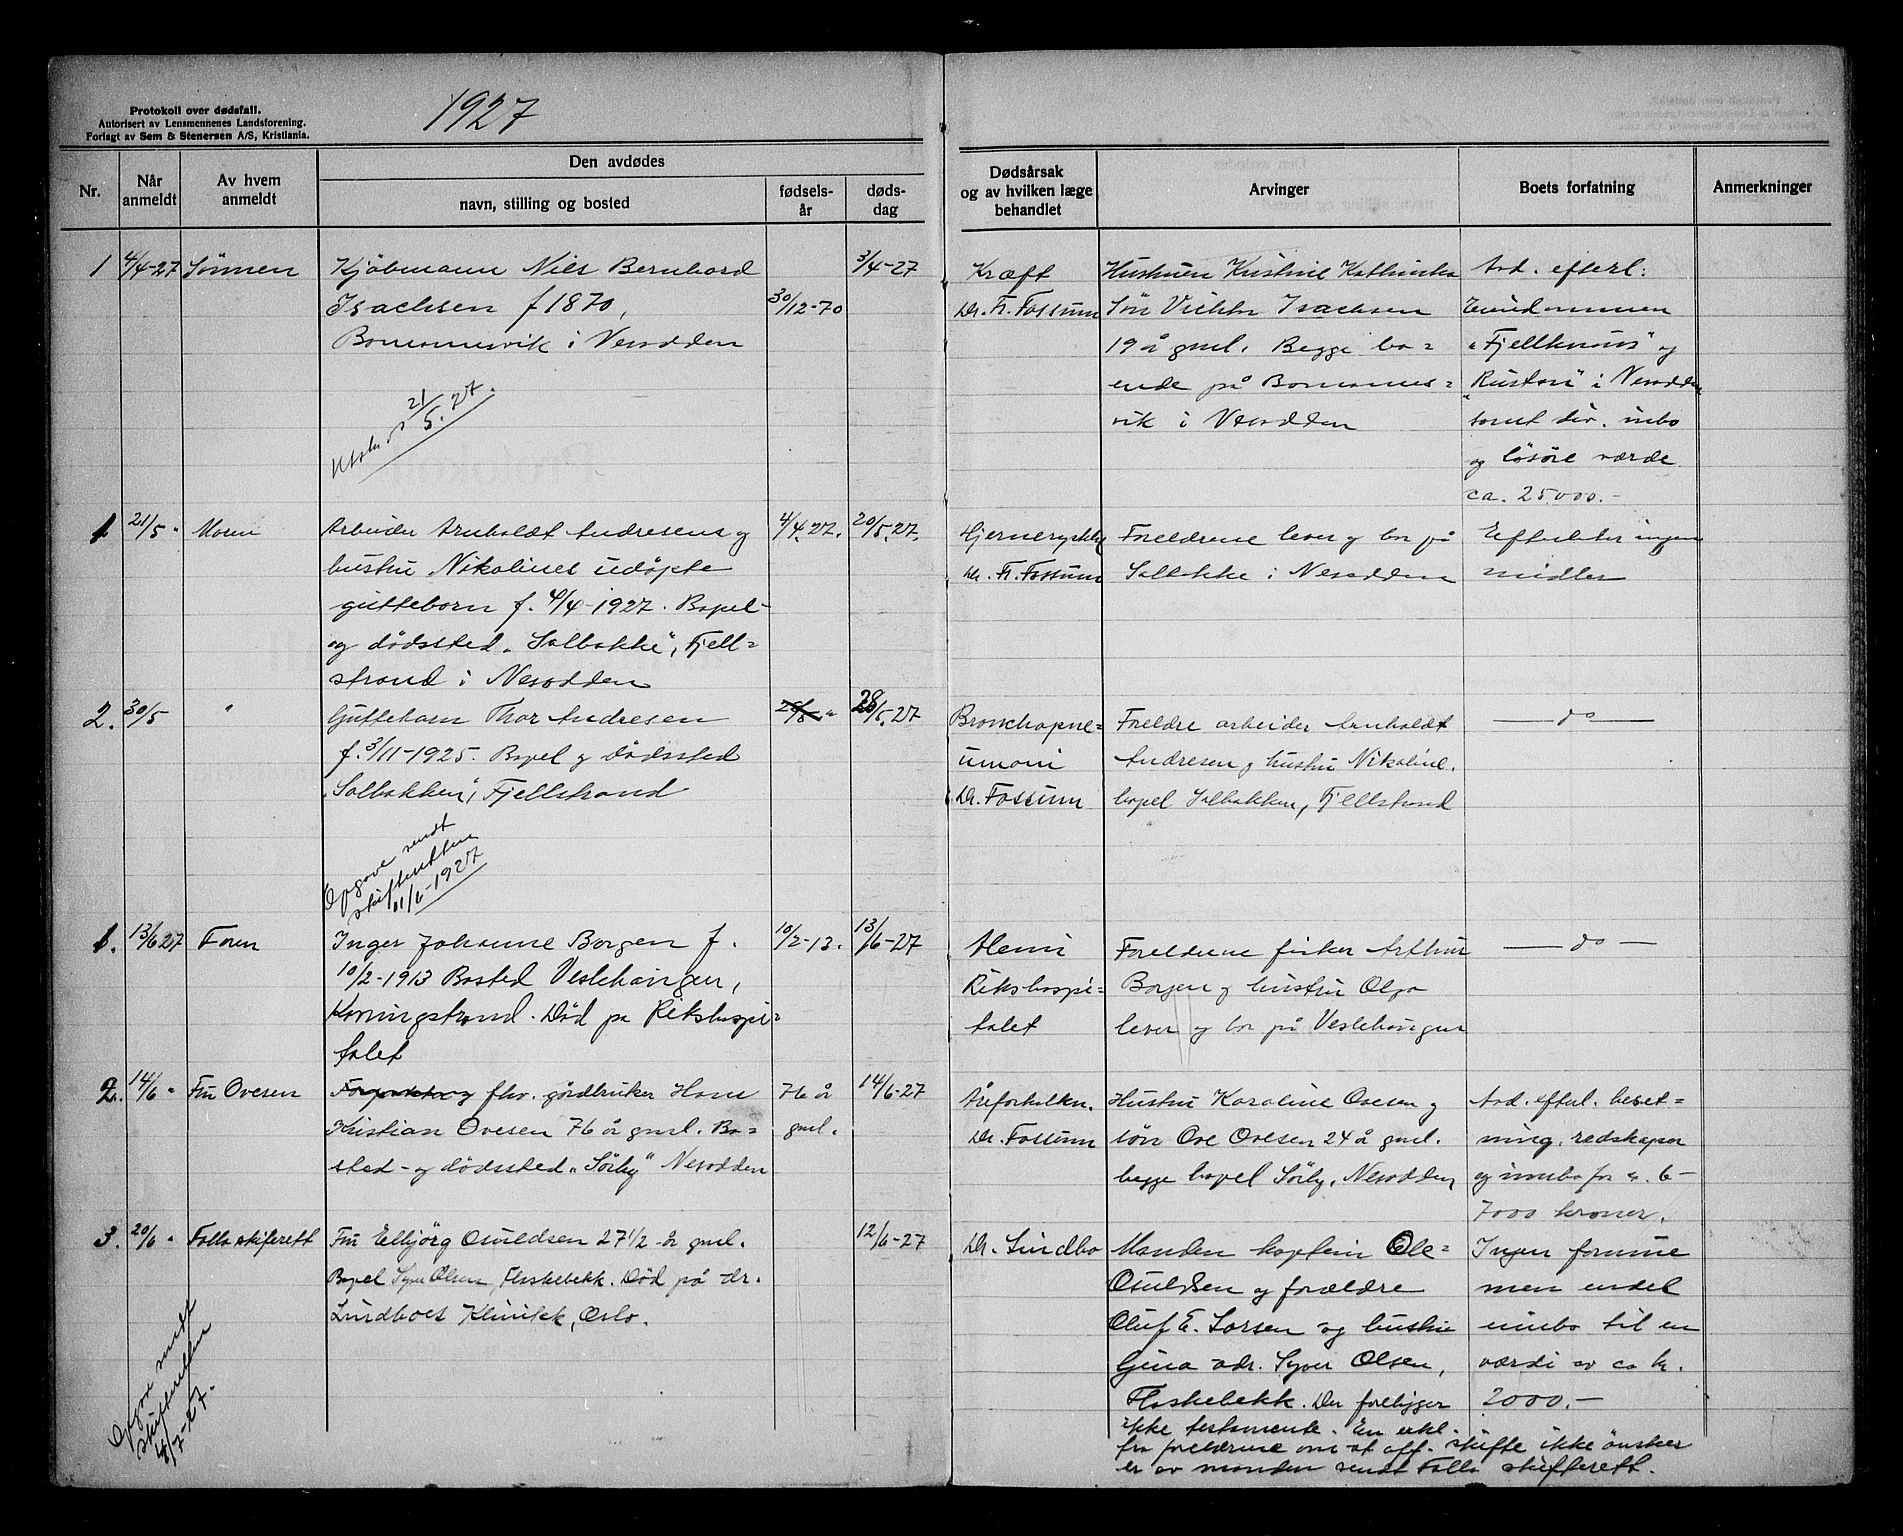 1927
Protokoll over dødsfall.
Autorisert av Lensmennenes Landsforening.
Forlagt av Sem & Stenersen A/S, Kristiania.
Nr.
Når anmeldt
Av hvem anmeldt
Den avdødes
navn, stilling og bosted
fødsels-
år
døds-
dag
Dødsårsak
og av hvilken læge
behandlet
Arvinger
Boets forfatning
Anmerkninger
1 4/4-27 Sønnen
Kjøbmann Nils Bernhard
Isachsen f 1870,
i Nesodden
30/12-70
3/4-27
Kræft
Dr. Fr. Fossum
Hustruen Kristine Kathinka
Søn Viktor Isachsen
19 år gml. Begge bo=
ende på Bomannes=
vik i Nesodden
Avd. efterl:
Eiendommen
"Fjellknaus" og
"Rustan" i Nesodden
samt div. inbo
og løsøre værde
ca. 25000.-
21/5.27.
1. 21/5 " Moren
Arbeider Arnholdt Andresens og
hustru Nikolines udøpte
guttebarn f. 4/4-1927. Bopel-
og dødssted "Solbakke", Fjell=
strand i Nesodden
4/4.27.
20/5.27.
Hjernerystelse
Dr. Fr. Fossum
Foreldrene lever og bor på
Solbakke i Nesodden
Efterlater ingen
midler
2. 30/5 "
Guttebarn Thor Andresen
f. 3/11-1925. Bopel og dødssted
"Solbakken", Fjellstrand
28/5.27
Bronchopne=
umoni
Dr. Fossum
Foreldre arbeider Arnholdt
Andresen og hustru Nikoline.
bopel Solbakken, Fjellstrand
— do —
Opgave sendt
skifteretten
11/6-1927
1. 13/6 27 Faren
Inger Johanne Borgen f.
10/2-1913 Bosted Veslehaugen,
Død på Rikshospi=
talet
10/2-13.
13/6-27
Rikshospi=
talet
Foreldrene fisker Arthur
Borgen og hustru Olga
lever og bor på Veslehaugen
— do —
2. 14/6 " Fru Ovesen
fhv. gårdbruker Hans
Kristian Ovesen 76 år gml. Bo=
sted- og dødssted "Sørby" Nesodden
76 år
gml.
14/6-27
Åreforkalkn.
Dr. Fossum
Hustru Karoline Ovesen og
søn Ove Ovesen 24 år gml.
begge bopel Sørby, Nesodden
Avd. efterl. beset=
ning, redskaper
og innbo for ca. 6-
7000 kroner.
3. 20/6 " Follo skifterett
Fru Elbjørg Osuldsen 27 1/2 år gml.
Bopel Syver Olsen, Flaskebekk. Død på dr.
Lindboes Klinikk, Oslo.
12/6-27
Dr. Lindbo
Manden kaptein Ole
Osuldsen og forældre
Oluf E. Larsen og hustru
Gina adr. Syver Olsen,
Flaskebekk. Der foreligger
ikke testamente. En erkl.
fra foreldrene om at off. skifte ikke ønskes
er av manden sendt Follo skifterett.
Ingen formue
men endel
innbo til en
værdi av ca kr.
2000.-
Opgave sendt
skifteretten
4/7-27.